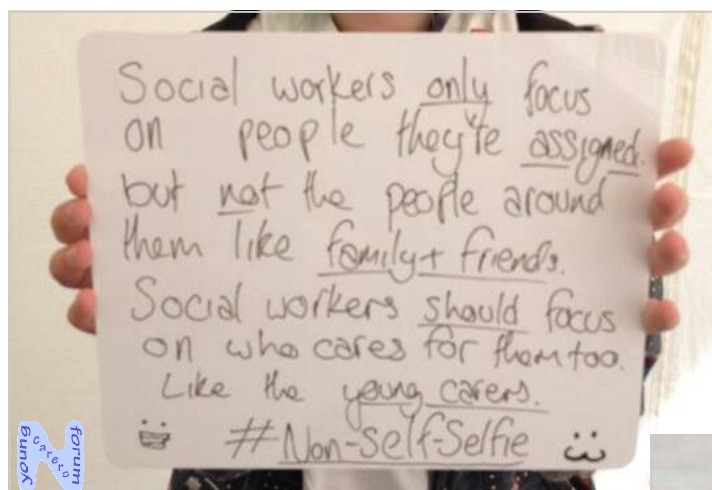 Social workers only focus
on people they're assigned.
but not the people around
them like family + friends.
Social workers should focus
on who cares for them too.
Like the young carers.
#Non-Self-Selfie
young
carers
forum